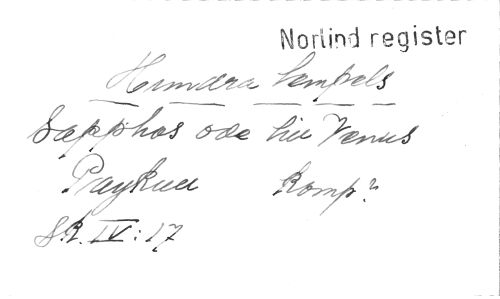 Norlind register
Hundra tempels
Sapphos ode till Venus
Paykull Komp?
S.R. IV: 17